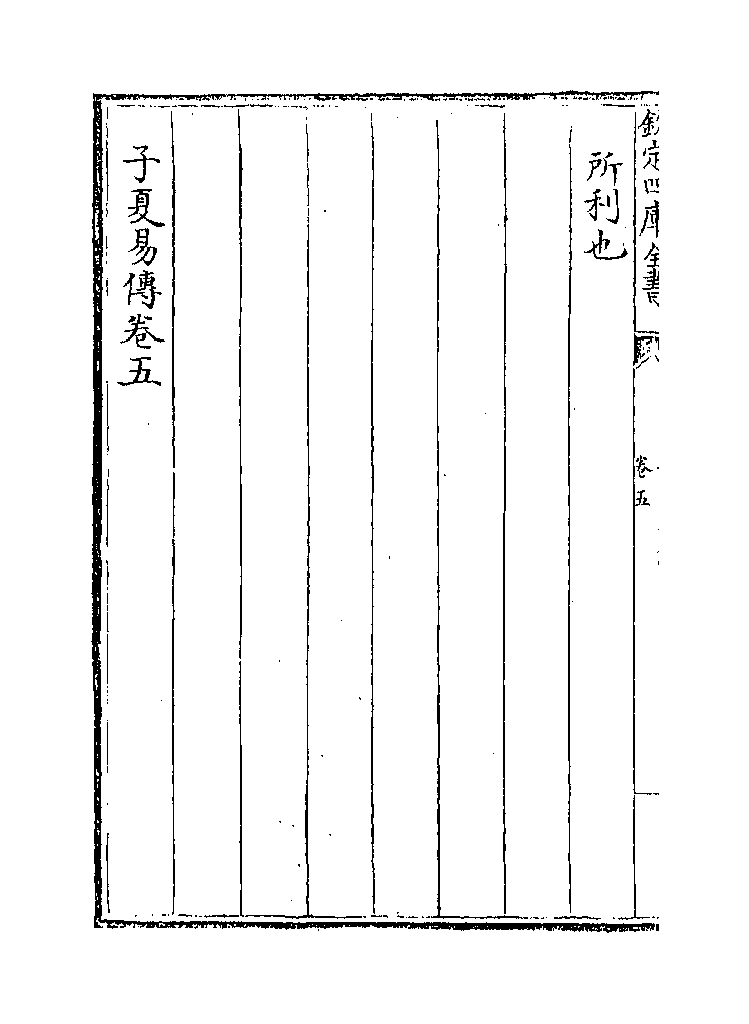 欽定四庫全書
卷五
所利也
子夏易傳卷五